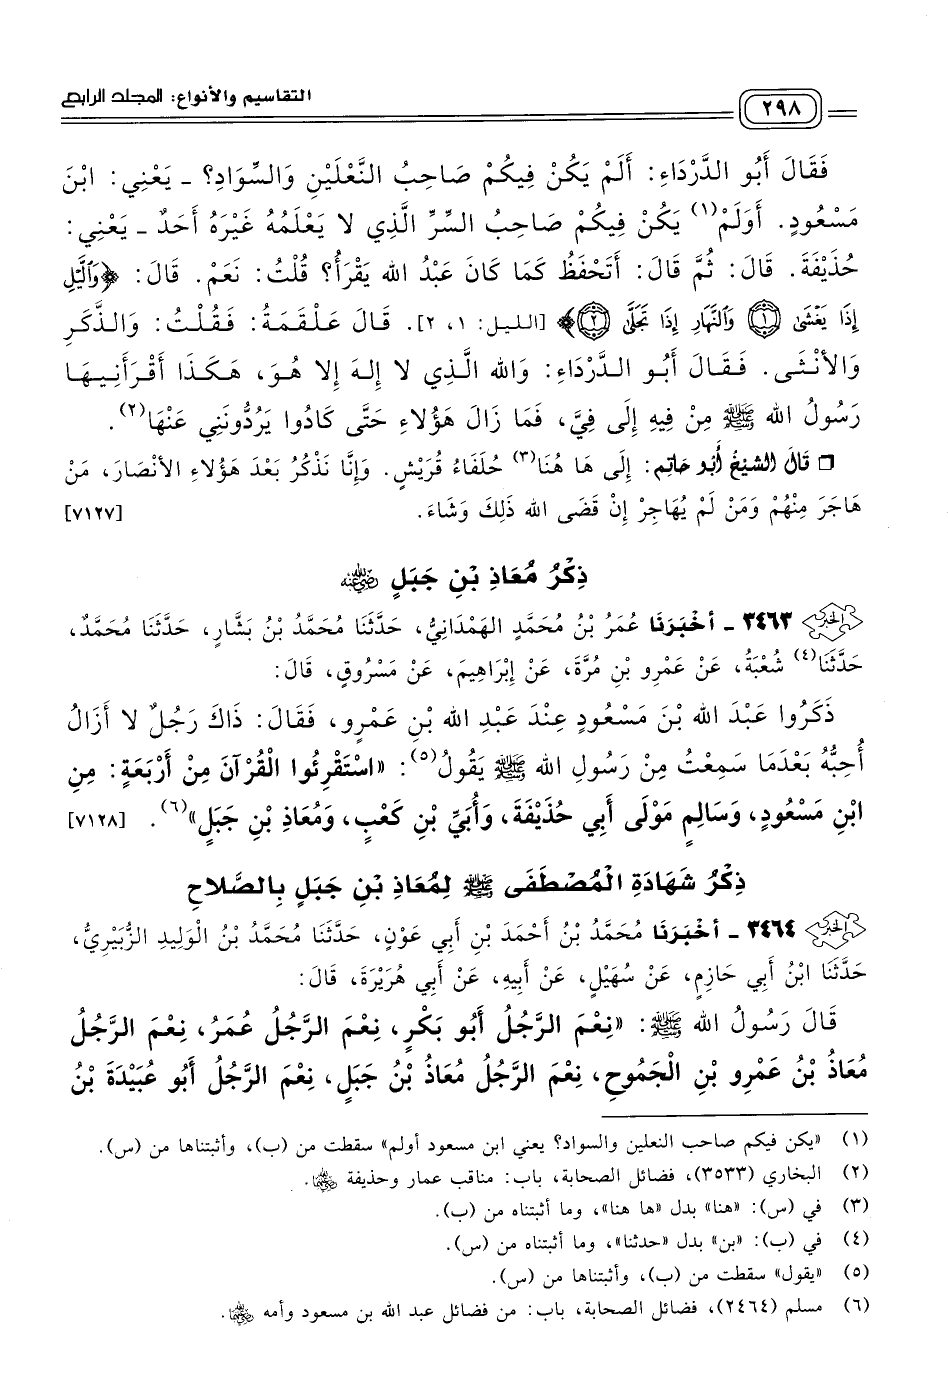 ٢٩٨
التقاسيم والأنواع: المجلد الرابع
فَقَالَ أَبُو الدَّرْدَاءِ: أَلَمْ يَكُنْ فِيكُمْ صَاحِبُ النَّعْلَيْنِ وَالسِّوَادِ؟ ـ يَعْنِي: ابْنَ
مَسْعُودٍ. أَوَلَمْ(١) يَكُنْ فِيكُمْ صَاحِبُ السِّرِّ الَّذِي لا يَعْلَمُهُ غَيْرَهُ أَحَدٌ ـ يَعْنِي:
حُذَيْفَةَ. قَالَ: ثُمَّ قَالَ: أَتَحْفَظُ كَمَا كَانَ عَبْدُ الله يَقْرَأُ؟ قُلْتُ: نَعَمْ. قَالَ: ﴿وَٱلَّيْلِ
إِذَا يَغْشَىٰ ۝١ وَٱلنَّهَارِ إِذَا تَجَلَّىٰ ۝٢﴾ [الليل: ١، ٢]. قَالَ عَلْقَمَةُ: فَقُلْتُ: وَالذَّكَرِ
وَالأُنْثَى. فَقَالَ أَبُو الدَّرْدَاءِ: وَالله الَّذِي لا إِلهَ إِلا هُوَ، هَكَذَا أَقْرَأَنِيهَا
رَسُولُ الله ﷺ مِنْ فِيهِ إِلَى فِيَّ، فَمَا زَالَ هَؤُلاءِ حَتَّى كَادُوا يَرُدُّونَنِي عَنْهَا(٢).
□ قَالَ الشَّيْخُ أَبُو حَاتِم: إِلَى هَا هُنَا(٣) حُلَفَاءُ قُرَيْشٍ. وَإِنَّا نَذْكُرُ بَعْدَ هَؤُلاءِ الأَنْصَارَ، مَنْ
هَاجَرَ مِنْهُمْ وَمَنْ لَمْ يُهَاجِرْ إِنْ قَضَى الله ذَلِكَ وَشَاءَ. [٧١٢٧]
ذِكْرُ مُعَاذِ بْنِ جَبَلٍ رضي الله عنه
الخبر ٣٤٦٣ ـ أَخْبَرَنَا عُمَرُ بْنُ مُحَمَّدٍ الهَمْدَانِيُّ، حَدَّثَنَا مُحَمَّدُ بْنُ بَشَّارٍ، حَدَّثَنَا مُحَمَّدٌ،
حَدَّثَنَا(٤) شُعْبَةُ، عَنْ عَمْرِو بْنِ مُرَّةَ، عَنْ إِبْرَاهِيمَ، عَنْ مَسْرُوقٍ، قَالَ:
ذَكَرُوا عَبْدَ الله بْنَ مَسْعُودٍ عِنْدَ عَبْدِ الله بْنِ عَمْرٍو، فَقَالَ: ذَاكَ رَجُلٌ لا أَزَالُ
أُحِبُّهُ بَعْدَمَا سَمِعْتُ مِنْ رَسُولِ الله ﷺ يَقُولُ(٥): «اسْتَقْرِئُوا الْقُرْآنَ مِنْ أَرْبَعَةٍ: مِنِ
ابْنِ مَسْعُودٍ، وَسَالِمٍ مَوْلَى أَبِي حُذَيْفَةَ، وَأُبَيِّ بْنِ كَعْبٍ، وَمُعَاذِ بْنِ جَبَلٍ»(٦). [٧١٢٨]
ذِكْرُ شَهَادَةِ الْمُصْطَفَى ﷺ لِمُعَاذِ بْنِ جَبَلٍ بِالصَّلاحِ
الخبر ٣٤٦٤ ـ أَخْبَرَنَا مُحَمَّدُ بْنُ أَحْمَدَ بْنِ أَبِي عَوْنٍ، حَدَّثَنَا مُحَمَّدُ بْنُ الْوَلِيدِ الزُّبَيْرِيُّ،
حَدَّثَنَا ابْنُ أَبِي حَازِمٍ، عَنْ سُهَيْلٍ، عَنْ أَبِيهِ، عَنْ أَبِي هُرَيْرَةَ، قَالَ:
قَالَ رَسُولُ الله ﷺ: «نِعْمَ الرَّجُلُ أَبُو بَكْرٍ، نِعْمَ الرَّجُلُ عُمَرُ، نِعْمَ الرَّجُلُ
مُعَاذُ بْنُ عَمْرِو بْنِ الْجَمُوحِ، نِعْمَ الرَّجُلُ مُعَاذُ بْنُ جَبَلٍ، نِعْمَ الرَّجُلُ أَبُو عُبَيْدَةَ بْنُ
(١) «يكن فيكم صاحب النعلين والسواد؟ يعني ابن مسعود أولم» سقطت من (ب)، وأثبتناها من (س).
(٢) البخاري (٣٥٣٣)، فضائل الصحابة، باب: مناقب عمار وحذيفة رضي الله عنهما.
(٣) في (س): «هنا» بدل «ها هنا»، وما أثبتناه من (ب).
(٤) في (ب): «بن» بدل «حدثنا»، وما أثبتناه من (س).
(٥) «يقول» سقطت من (ب)، وأثبتناها من (س).
(٦) مسلم (٢٤٦٤)، فضائل الصحابة، باب: من فضائل عبد الله بن مسعود وأمه رضي الله عنهما.